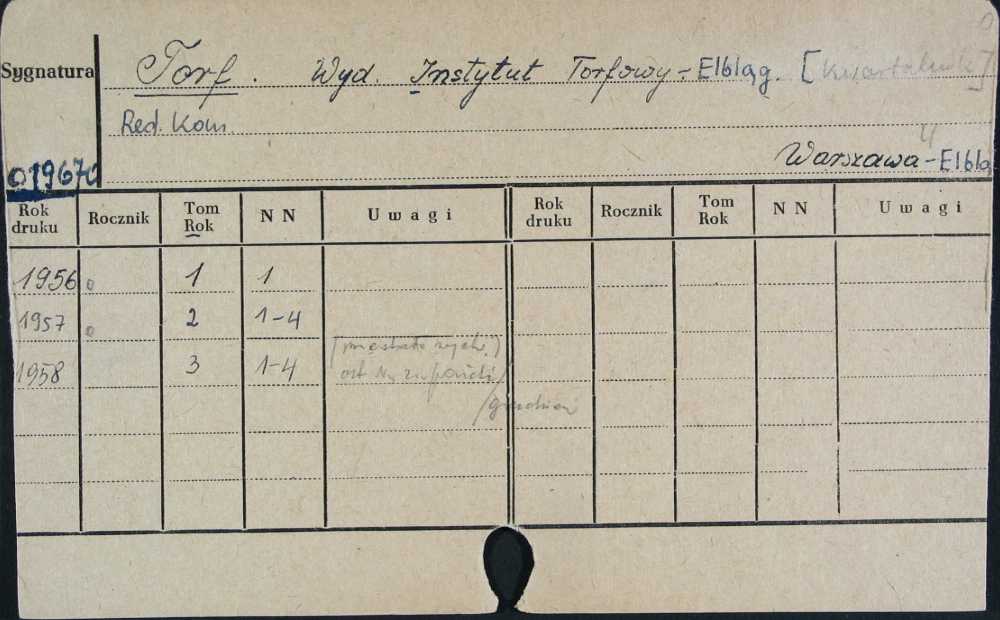 Sygnatura Torf. Wyd. Instytut Torfowy - Elbląg. [Kwartalnik]
Red. Kom.
Warszawa - Elblą
019670
Rok druku Rocznik Tom Rok NN Uwagi Rok druku Rocznik Tom Rok NN Uwagi
1956 1 1
1957 2 1-4
1958 3 1-4